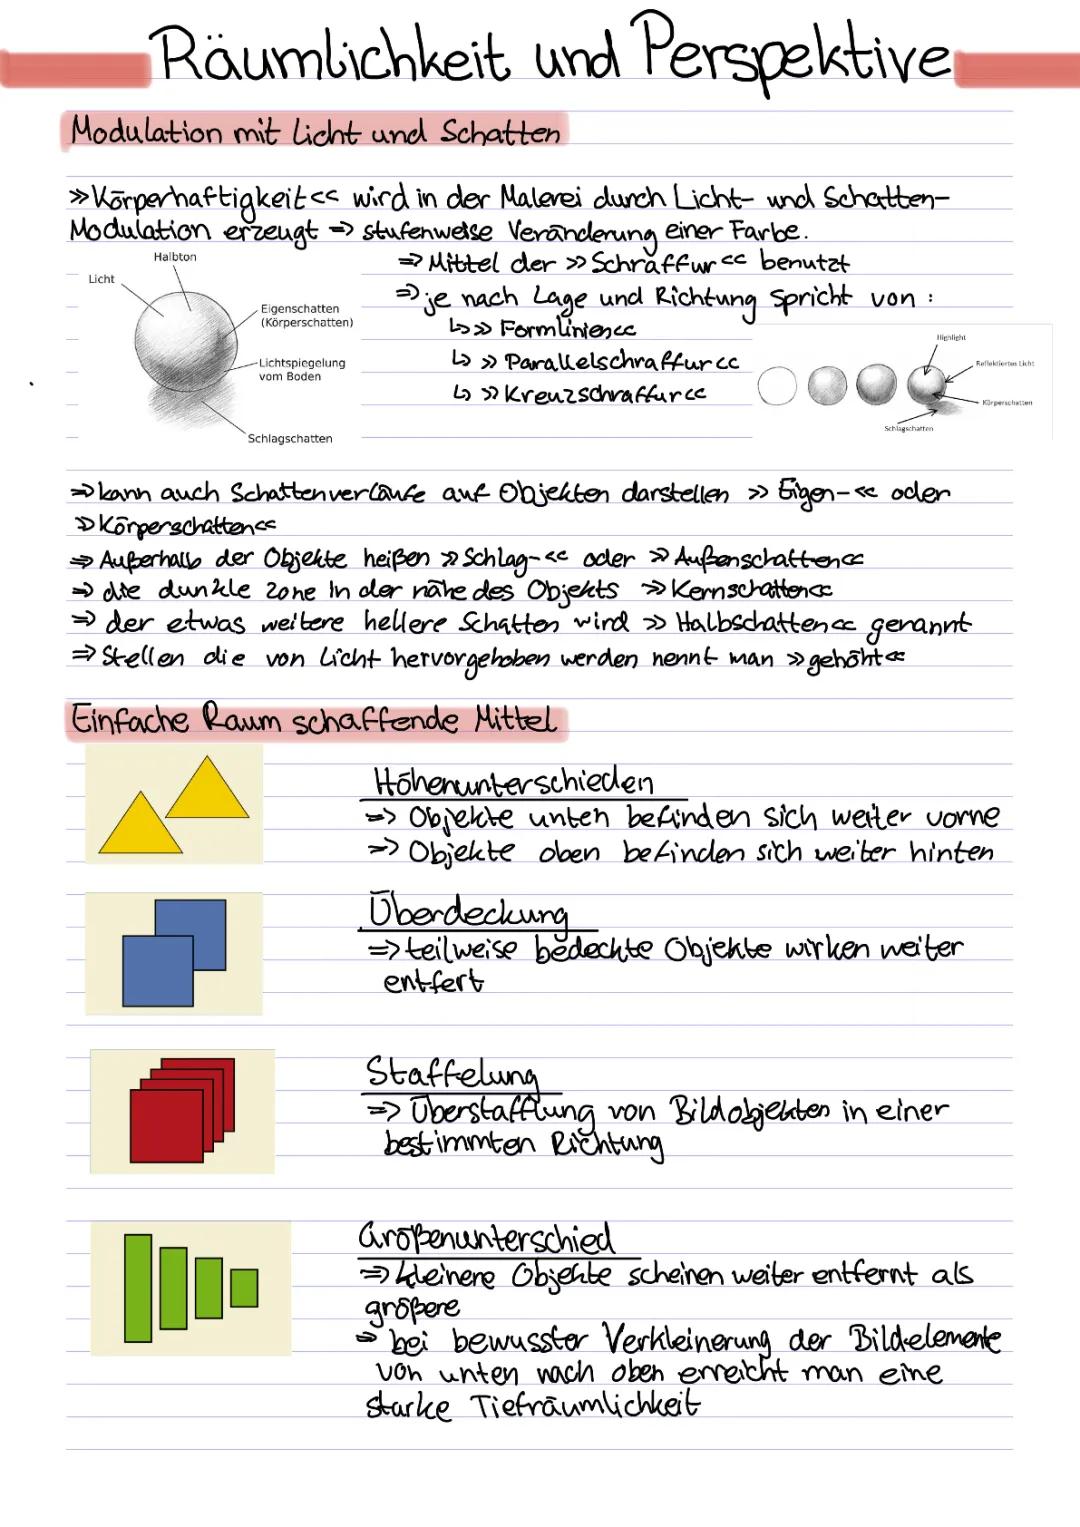 Räumlichkeit und Perspektive
Modulation mit Licht und Schatten
»Körperhaftigkeit<< wird in der Malerei durch Licht- und Schatten-
Modulation erzeugt => stufenweise Veränderung einer Farbe.
=> Mittel der >> Schraffur << benutzt
=> je nach Lage und Richtung spricht von :
↳>> Formlinien<<
↳ >> Parallelschraffur <<
↳ >> Kreuzschraffur <<
Halbton
Licht
Eigenschatten
(Körperschatten)
Lichtspiegelung
vom Boden
Schlagschatten
Highlight
Reflektiertes Licht
Körperschatten
Schlagschatten
=> kann auch Schattenverläufe auf Objekten darstellen >> Eigen-<< oder
>> Körperschatten<<
=> Außerhalb der Objekte heißen >> Schlag-<< oder >> Außenschatten<<
=> die dunkle Zone in der nähe des Objekts >> Kernschatten<<
=> der etwas weitere hellere Schatten wird >> Halbschatten<< genannt
=> Stellen die von Licht hervorgehoben werden nennt man >> gehöht <<
Einfache Raum schaffende Mittel
Höhenunterschieden
=> Objekte unten befinden sich weiter vorne
=> Objekte oben befinden sich weiter hinten
Überdeckung
=> teilweise bedeckte Objekte wirken weiter
entfert
Staffelung
=> Überstafflung von Bildobjekten in einer
bestimmten Richtung
Größenunterschied
=> kleinere Objekte scheinen weiter entfernt als
größere
=> bei bewusster Verkleinerung der Bildelemente
von unten nach oben erreicht man eine
starke Tiefräumlichkeit